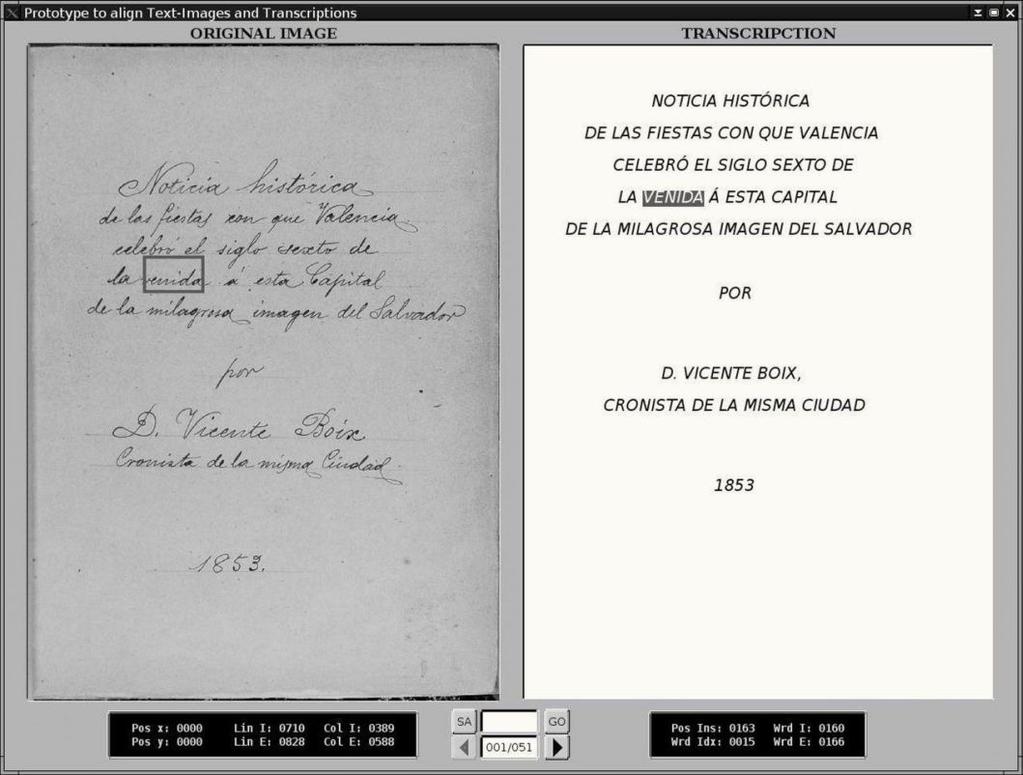 Prototype to align Text-Images and Transcriptions
ORIGINAL IMAGE
Noticia histórica
de las fiestas con que Valencia
celebró el siglo sexto de
la venida á esta Capital
de la milagrosa imagen del Salvador
por
D. Vicente Boix
Cronista de la misma Ciudad.
1853.
TRANSCRIPCTION
NOTICIA HISTÓRICA
DE LAS FIESTAS CON QUE VALENCIA
CELEBRÓ EL SIGLO SEXTO DE
LA VENIDA Á ESTA CAPITAL
DE LA MILAGROSA IMAGEN DEL SALVADOR
POR
D. VICENTE BOIX,
CRONISTA DE LA MISMA CIUDAD
1853
Pos x: 0000 Lin I: 0710 Col I: 0389
Pos y: 0000 Lin E: 0828 Col E: 0588
SA GO
001/051
Pos Ins: 0163 Wrd I: 0160
Wrd Idx: 0015 Wrd E: 0166